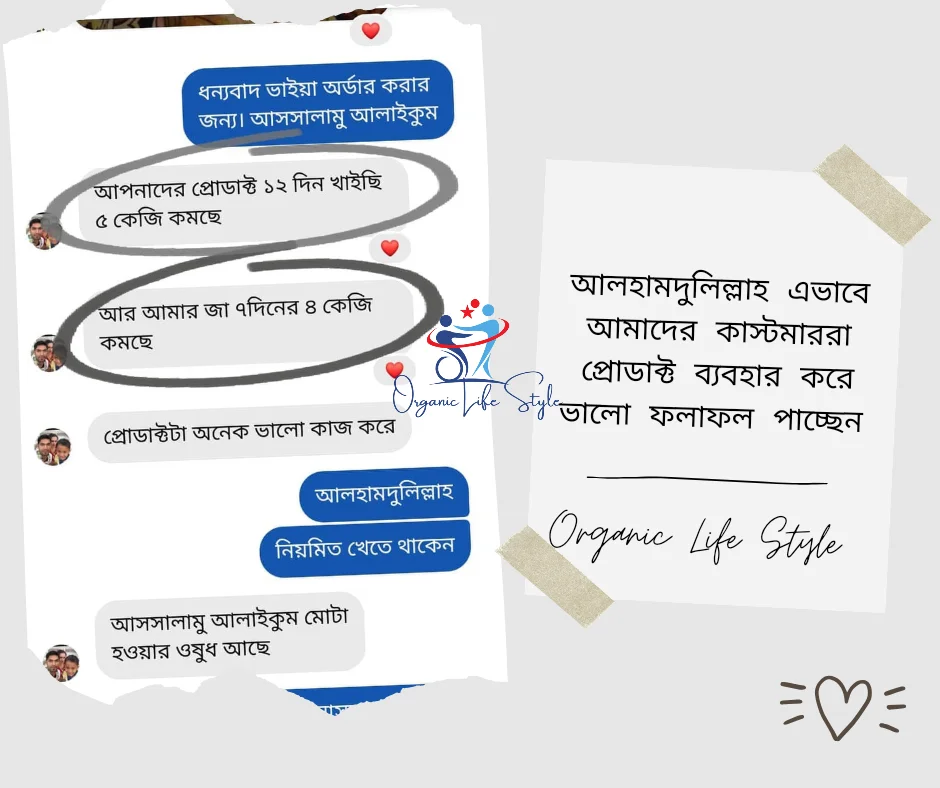 ধন্যবাদ ভাইয়া অর্ডার করার
জন্য। আসসালামু আলাইকুম
আপনাদের প্রোডাক্ট ১২ দিন খাইছি
৫ কেজি কমছে
আর আমার জা ৭দিনের ৪ কেজি
কমছে
প্রোডাক্টটা অনেক ভালো কাজ করে
আলহামদুলিল্লাহ
নিয়মিত খেতে থাকেন
আসসালামু আলাইকুম মোটা
হওয়ার ওষুধ আছে
Organic Life Style
আলহামদুলিল্লাহ এভাবে
আমাদের কাস্টমাররা
প্রোডাক্ট ব্যবহার করে
ভালো ফলাফল পাচ্ছেন
Organic Life Style